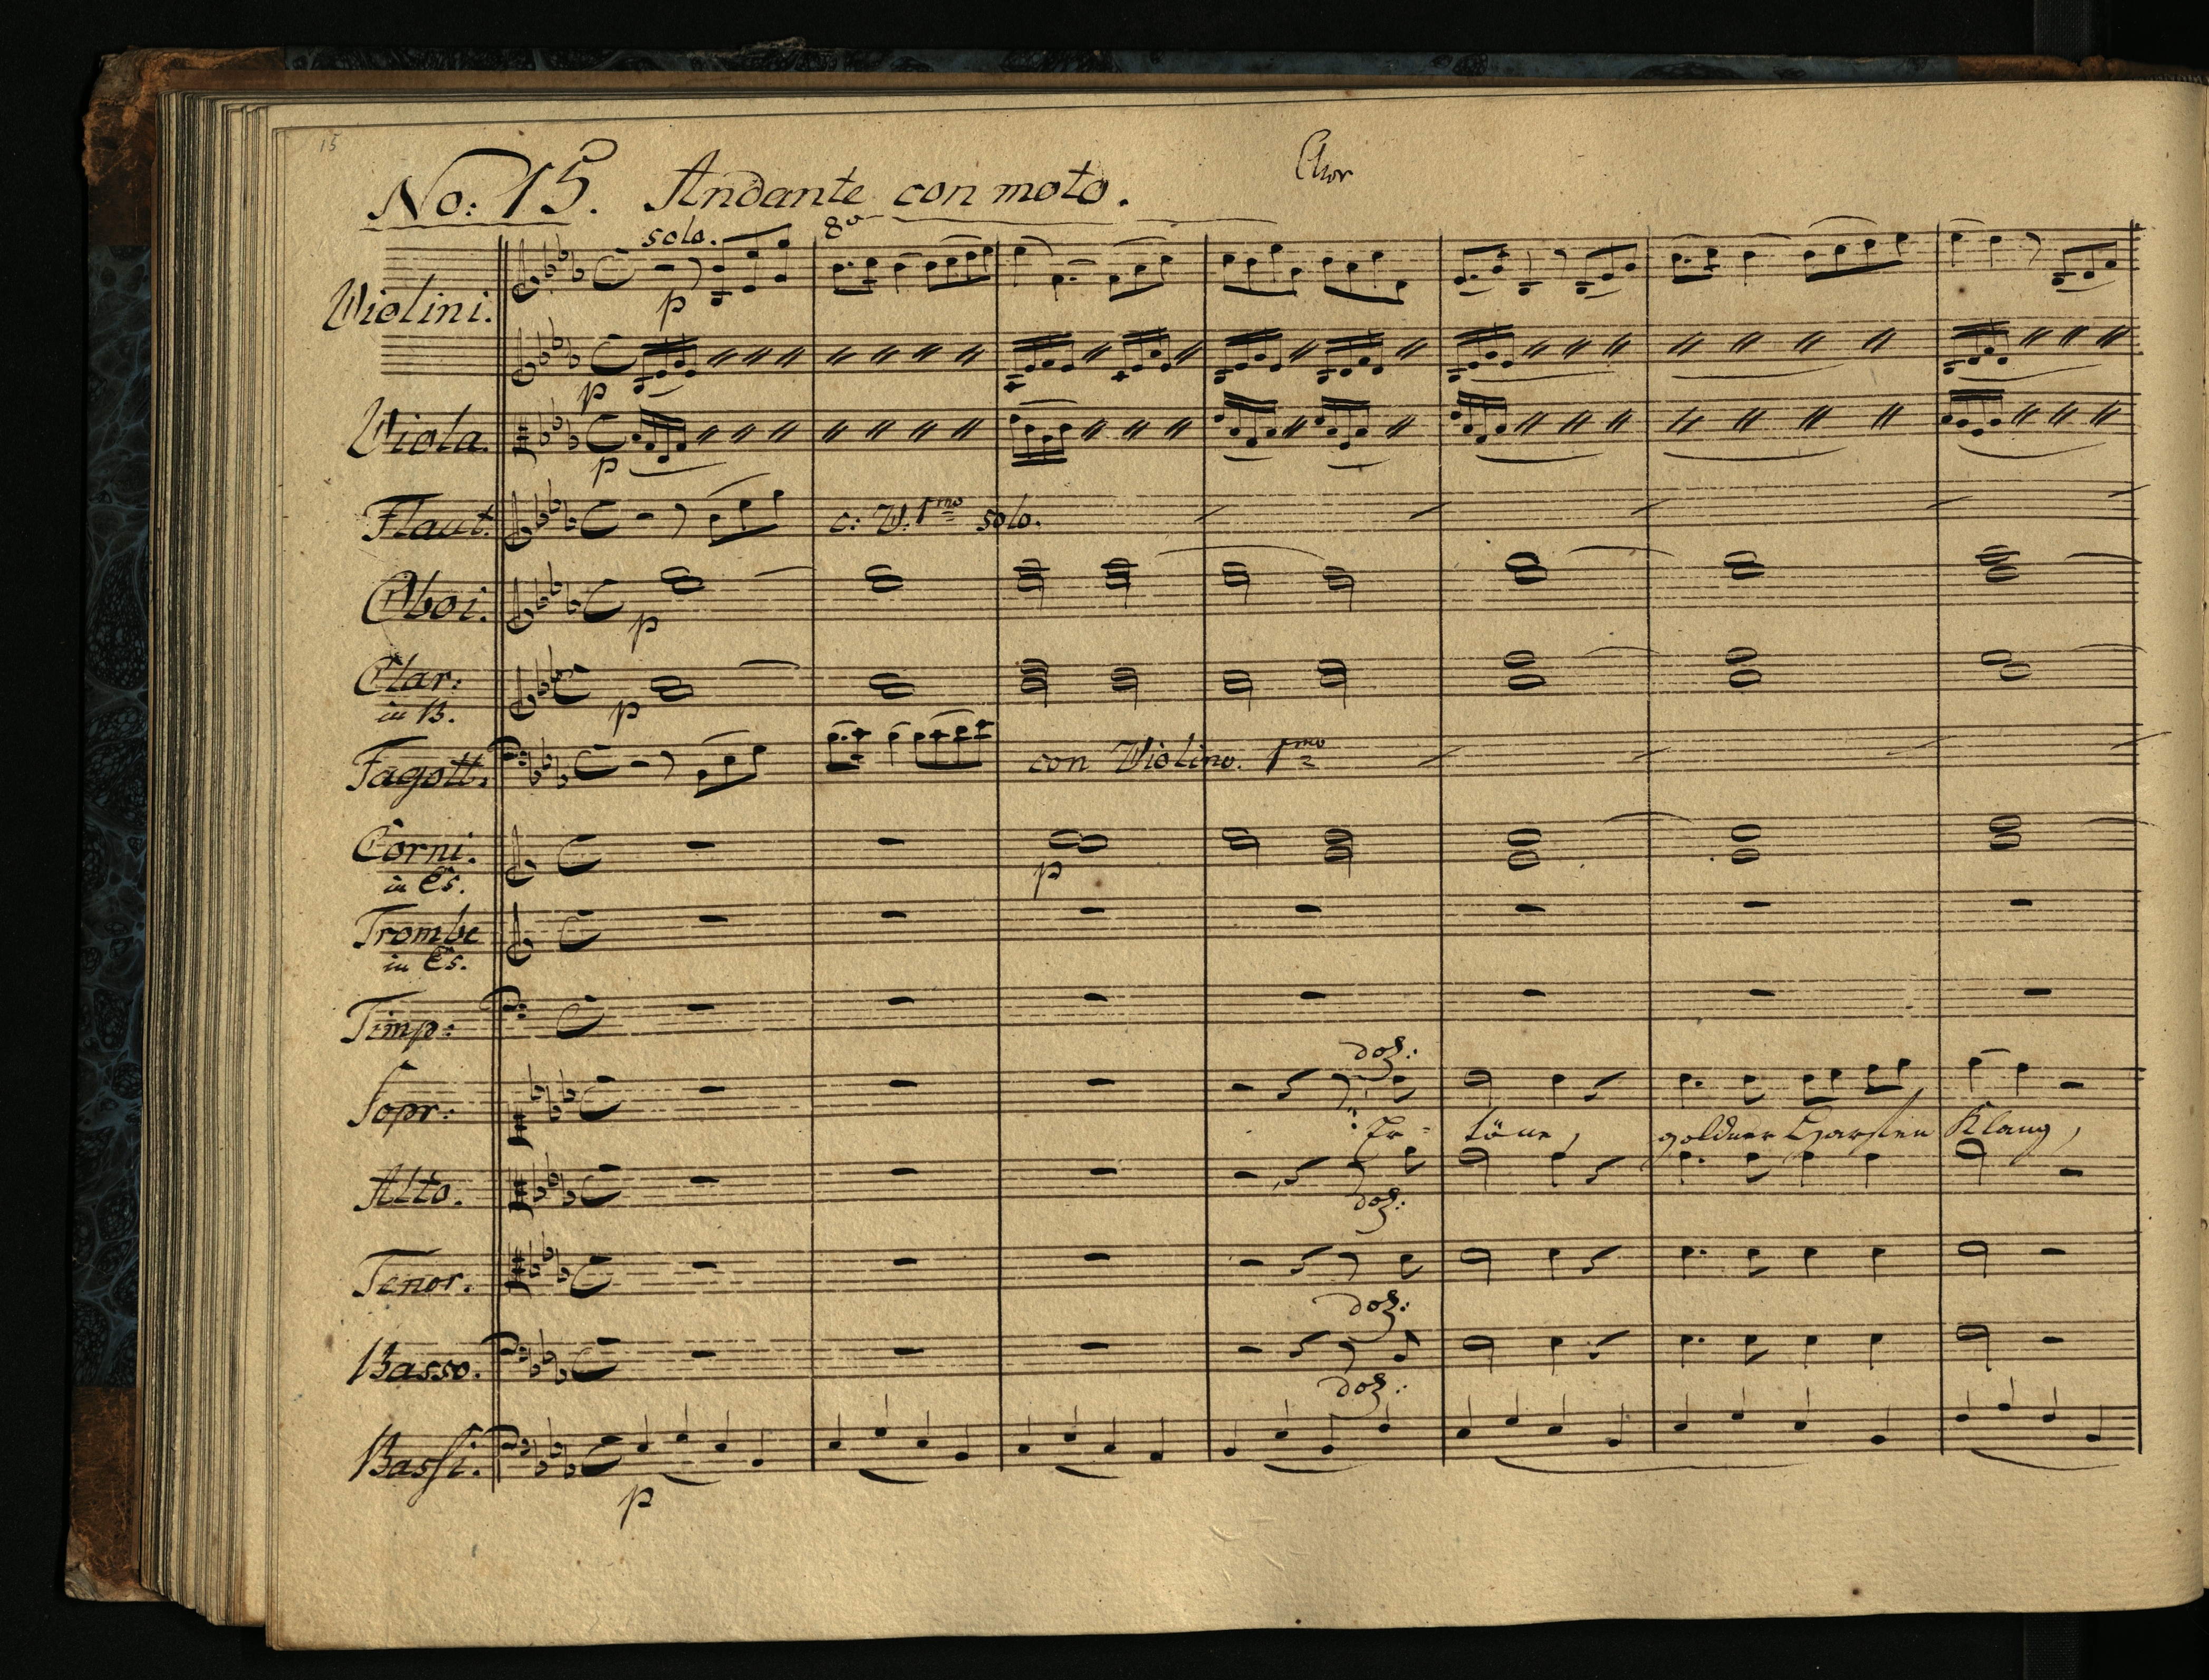 15
No: 15. Andante con moto. Chor
solo. 8va
Violini. p
p
Viola. p
Flaut. c: V. 1mo solo.
Oboi. p
Clar: in B. p
Fagott. con Violino. 1mo
Corni. in Es. p
Trombe in Es.
Timp:
Sopr: doz:
Er- töne, goldner Harfen Klang,
Alto. doz:
Tenor. doz:
Basso. doz:
Bassi. p